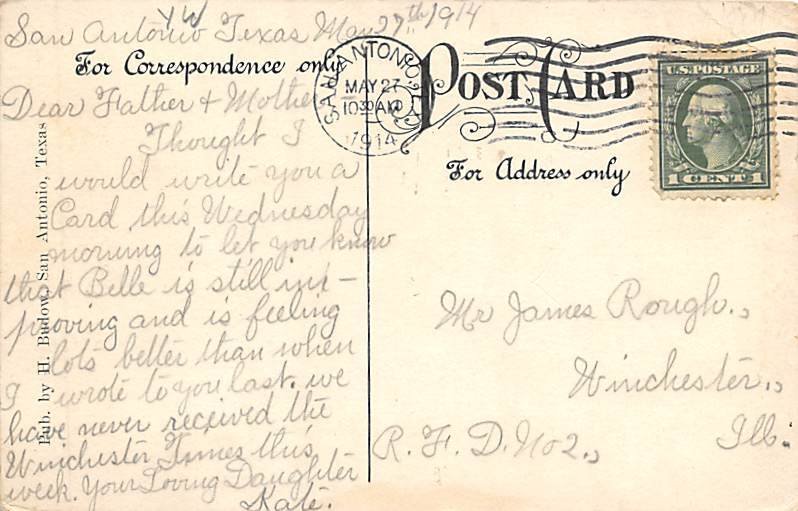 YW
San Antonio Texas May 27th 1914
For Correspondence only
Dear Father & Mother
Thought I
would write you a
Card this Wednesday
morning to let you know
that Belle is still im-
proving and is feeling
lots better than when
I wrote to you last. we
have never received the
Winchester Times this
week. Your Loving Daughter
Kate.
Pub. by H. Budow, San Antonio, Texas
SAN ANTONIO
MAY 27
10 30 AM
1914
POST CARD
For Address only
U.S. POSTAGE
1 CENT 1
Mr James Rough.,
Winchester.,
R. F. D. No 2.,
Ill.